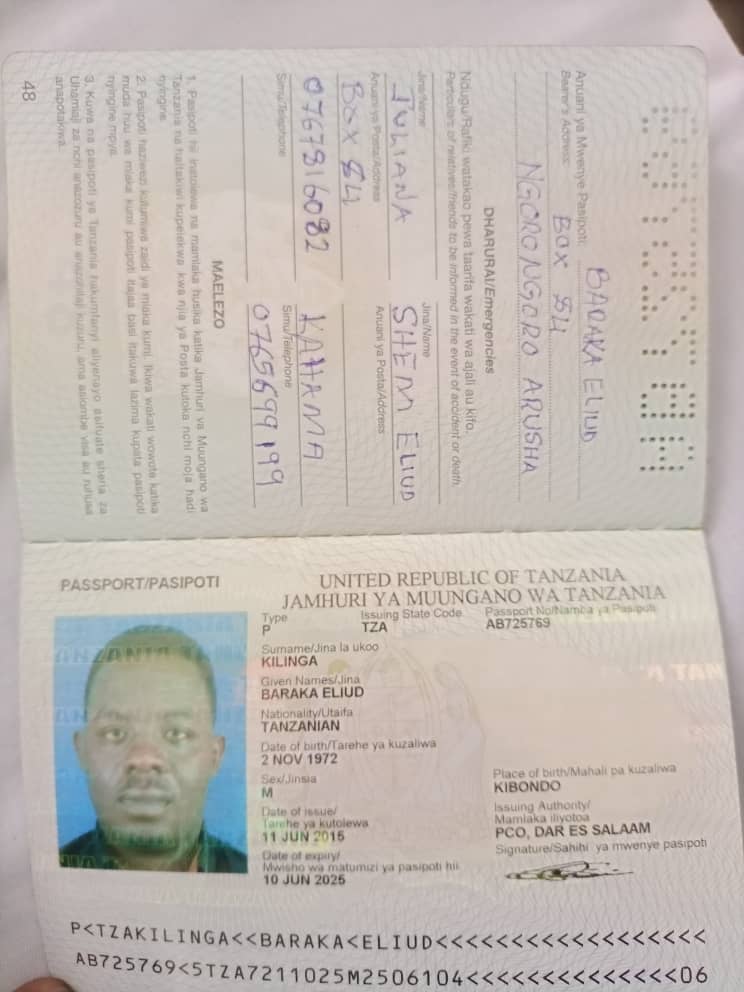 Anuani ya Mwenye Pasipoti:
Bearer's Address:
BARAKA ELIUD
BOX 84
NGORONGORO ARUSHA
DHARURA/Emergencies
Ndugu/Rafiki watakao pewa taarifa wakati wa ajali au kifo.
Particulars of relatives/friends to be informed in the event of accident or death.
Jina/Name
JULIANA
Anuani ya Posta/Address
BOX 84
0767816082
Simu/Telephone
Jina/Name
SHEM ELIUD
Anuani ya Posta/Address
KAHAMA
Simu/Telephone
0765699199
MAELEZO
1. Pasipoti hii inatolewa na mamlaka husika katika Jamhuri ya Muungano wa
Tanzania na haitakiwi kupelekwa kwa njia ya Posta kutoka nchi moja hadi
nyingine.
2. Pasipoti haziwezi kutumiwa zaidi ya miaka kumi. Ikiwa wakati wowote katika
muda huu wa miaka kumi pasipoti itajaa basi itakuwa lazima kupata pasipoti
nyingine mpya.
3. Kuwa na pasipoti ya Tanzania hakumfanyi aliyenayo asifuate sheria za
Uhamiaji za nchi anazozuru au anazohitaji kuzuru, ama asiombe visa au ruhusa
anapotakiwa.
48
PASSPORT/PASIPOTI
UNITED REPUBLIC OF TANZANIA
JAMHURI YA MUUNGANO WA TANZANIA
Type
P
Issuing State Code
TZA
Passport No/Namba ya Pasipoti
AB725769
Surname/Jina la ukoo
KILINGA
Given Names/Jina
BARAKA ELIUD
Nationality/Utaifa
TANZANIAN
Date of birth/Tarehe ya kuzaliwa
2 NOV 1972
Sex/Jinsia
M
Place of birth/Mahali pa kuzaliwa
KIBONDO
Date of issue/
Tarehe ya kutolewa
11 JUN 2015
Issuing Authority/
Mamlaka iliyotoa
PCO, DAR ES SALAAM
Date of expiry/
Mwisho wa matumizi ya pasipoti hii
10 JUN 2025
Signature/Sahihi ya mwenye pasipoti
P<TZAKILINGA<<BARAKA<ELIUD<<<<<<<<<<<<<<<<<<
AB725769<5TZA7211025M2506104<<<<<<<<<<<<<<06